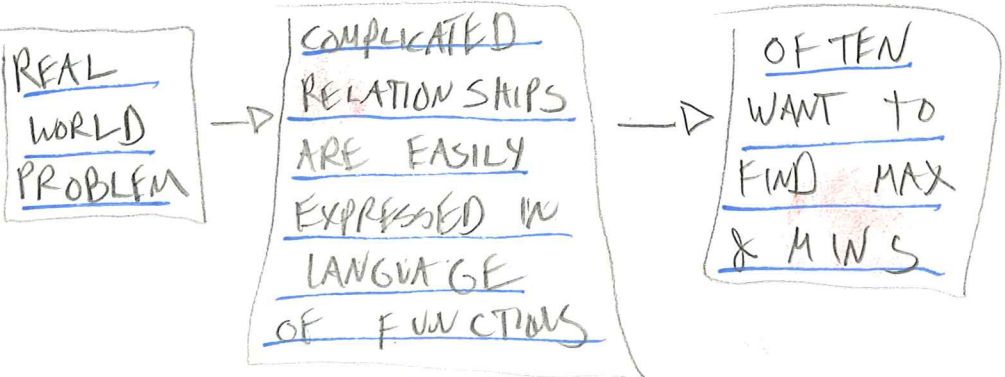 REAL
WORLD
PROBLEM
COMPLICATED
RELATIONSHIPS
ARE EASILY
EXPRESSED IN
LANGUAGE
OF FUNCTIONS
OFTEN
WANT TO
FIND MAX
& MINS